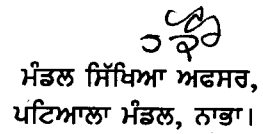 ਮੰਡਲ ਸਿੱਖਿਆ ਅਫਸਰ,
ਪਟਿਆਲਾ ਮੰਡਲ, ਨਾਭਾ।